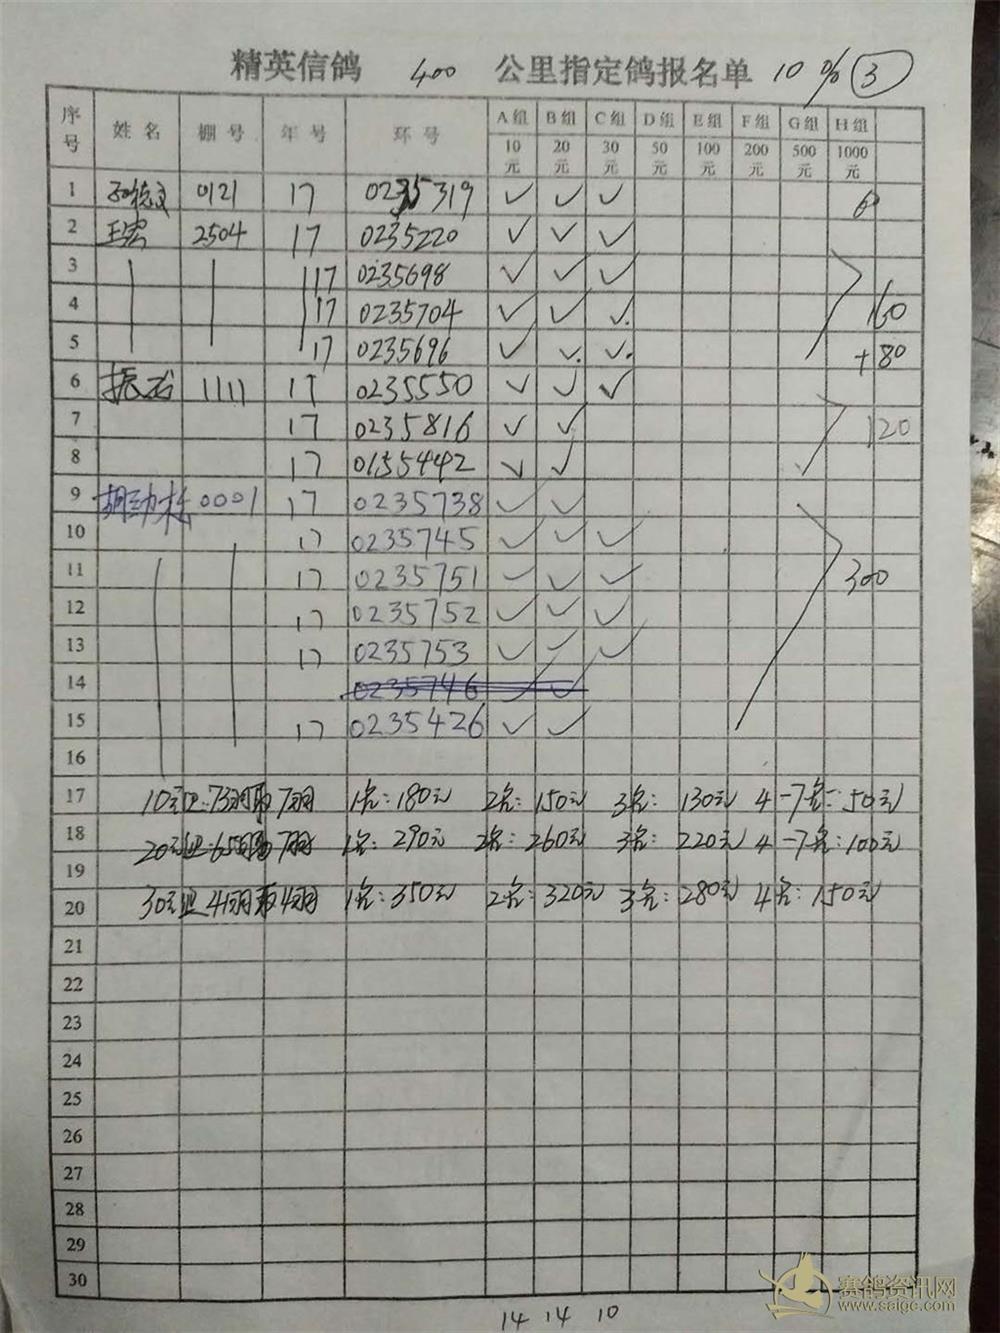 精英信鸽 400 公里指定鸽报名单 10% ③
序号 姓名 棚号 年号 环号 A组 B组 C组 D组 E组 F组 G组 H组
10元 20元 30元 50元 100元 200元 500元 1000元
1 0121 17 0235319 ✓ ✓ ✓ 60
2 王宏 2504 17 0235220 ✓ ✓ ✓
3 17 0235698 ✓ ✓ ✓
4 17 0235704 ✓ ✓ ✓ 160
5 17 0235696 ✓ ✓ ✓ +80
6 振龙 1111 17 0235550 ✓ ✓ ✓
7 17 0235816 ✓ ✓ 120
8 17 0155442 ✓ ✓
9 胡劲栋 0001 17 0235738 ✓ ✓
10 17 0235745 ✓ ✓ ✓
11 17 0235751 ✓ ✓ ✓ 300
12 17 0235752 ✓ ✓ ✓
13 17 0235753 ✓ ✓ ✓
14 0235746 ✓ ✓
15 17 0235426 ✓ ✓
16
17 10元组:73羽取7羽 1名:180元 2名:150元 3名:130元 4-7名:50元
18 20元组:65羽取7羽 1名:290元 2名:260元 3名:220元 4-7名:100元
19
20 30元组41羽取4羽 1名:350元 2名:320元 3名:280元 4名:150元
21
22
23
24
25
26
27
28
29
30
14 14 10
赛鸽资讯网
www.saigc.com